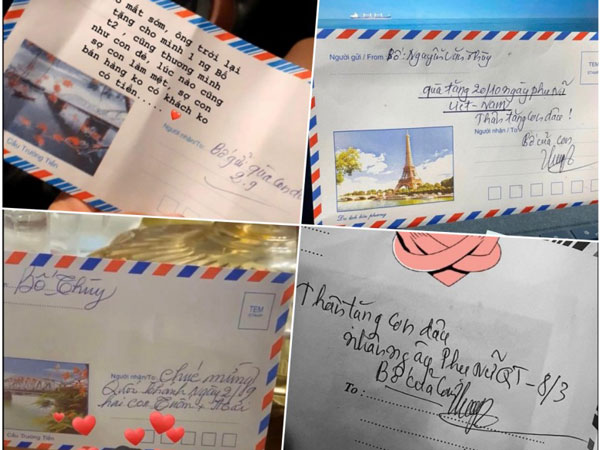 mất sớm, ông trời lại
tặng cho mình 1 ng Bố
t2, cũng thương mình
như con đẻ, lúc nào cũng
sợ con làm mệt, sợ con
bán hàng ko có khách ko
có tiền.....
Cầu Trường Tiền
Người nhận/To:
Bố gửi quà con
2.9
Người gửi / From: Bố: Nguyễn Văn Thùy
quà tặng 20/10 ngày phụ nữ
Việt-Nam
Thân tặng con dâu!
Người nhận / To
Bố của con
Du lịch bốn phương
Bố Thùy
TEM
STAMP
Người nhận/To: Chúc mừng
Quốc Khánh ngày 2/9
hai con
Cầu Trường Tiền
Thân tặng con dâu
nhân ngày Phụ Nữ QT-8/3
Bố của con
To: